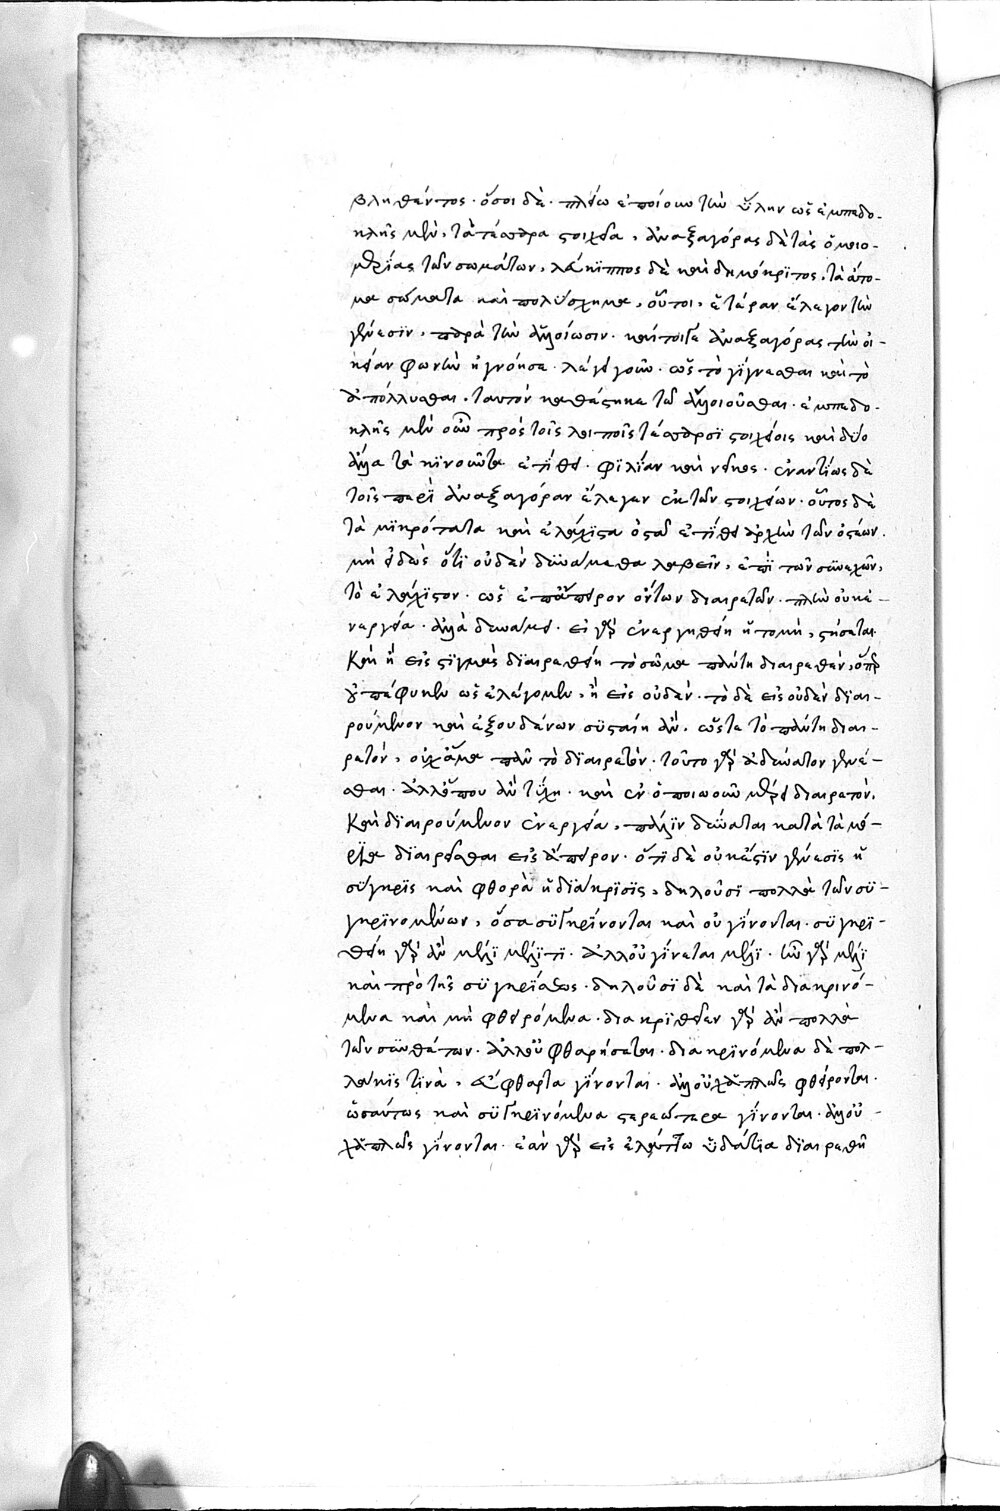 βληθέντος · ὅσοι δὲ · πλείω ἐποίουν τὴν ὕλην ὡς ἐμπεδο-
κλῆς μὲν, τὰ τέσσαρα στοιχεῖα, ἀναξαγόρας δὲ τὰς ὁμοιο-
μερείας τῶν σωμάτων, λεύκιππος δὲ καὶ δημόκριτος, τὰ ἄτο-
μα σώματα καὶ πολύσχημα, οὗτοι, ἑτέραν ἔλεγον τὴν
γένεσιν, παρὰ τὴν ἀλλοίωσιν · καίτοιγε ἀναξαγόρας τὴν οἰ-
κείαν φωνὴν ἠγνόησε · λέγει γοῦν · ὡς τὸ γίγνεσθαι καὶ τὸ
ἀπόλλυσθαι · ταυτὸν καθέστηκε τῷ ἀλλοιοῦσθαι · ἐμπεδο-
κλῆς μὲν οὖν πρὸς τοῖς λοιποῖς τέσσαρσι στοιχείοις καὶ δύο
ἄλλα τὰ κινοῦντα ἐτίθει · φιλίαν καὶ νεῖκος · ἐναντίως δὲ
τοῖς περὶ ἀναξαγόραν ἔλεγεν ἐκ τῶν στοιχείων · οὗτος δὲ
τὰ μικρότατα καὶ ἐλάχιστα ὀστᾶ ἐτίθει ἀρχὴν τῶν ὀστέων ·
μὴ εἰδὼς ὅτι οὐδὲν δυνάμεθα λαβεῖν, ἐπὶ τῶν συνεχῶν,
τὸ ἐλάχιστον · ὡς ἐπάπειρον ὄντων διαιρετῶν · πλὴν οὐκ ἐ-
νεργεία · ἀλλὰ δυνάμει · εἰ γὰρ ἐνεργηθείη ἡ τομὴ, στήσεται ·
Καὶ ἢ εἰς στιγμὰς διαιρεθείη τὸ σῶμα πάντη διαιρεθὲν, ὅπερ
οὐ πέφυκεν ὡς ἐλέγομεν, ἢ εἰς οὐδέν · τὸ δὲ εἰς οὐδὲν διαι-
ρούμενον καὶ ἐξουδένων συσταίη ἄν · ὥστε τὸ πάντη διαι-
ρετόν, οὐχ ἅμα πᾶν τὸ διαιρετόν · τοῦτο γὰρ ἀδύνατον γενέ-
σθαι · ἀλλ' ὅπου ἂν τύχῃ · καὶ ἐν ὁποιωοῦν μέρει διαιρετόν ·
Καὶ διαιρούμενον ἐνεργεία, πάλιν δύναται κατὰ τὰ μέ-
ρη διαιρεῖσθαι εἰς ἄπειρον · ὅτι δὲ οὐκ ἔστιν γένεσις ἡ
σύγκρισις καὶ φθορὰ ἡ διάκρισις, δηλοῦσι πολλὰ τῶν συ-
γκρινομένων, ὅσα συγκρίνονται καὶ οὐ γίνονται · συγκρι-
θείη γὰρ ἂν μέλι μέλιτι · ἀλλ' οὐ γίνεται μέλι · ἦν γὰρ μέλι
καὶ πρὸ τῆς συγκρίσεως · δηλοῦσι δὲ καὶ τὰ διακρινό-
μενα καὶ μὴ φθειρόμενα · διακριθεῖεν γὰρ ἂν πολλὰ
τῶν συνθέτων · ἀλλ' οὐ φθαρήσεται · διακρινόμενα δὲ πολ-
λάκις τινὰ, εὔφθαρτα γίνονται · ἀλλ' οὐχ ἁπλῶς φθείρονται ·
ὡσαύτως καὶ συγκρινόμενα στερεώτερα γίνονται · ἀλλ' οὐ-
χ ἁπλῶς γίνονται · ἐὰν γὰρ εἰς ἐλάττω ὑδάτια διαιρεθῆ